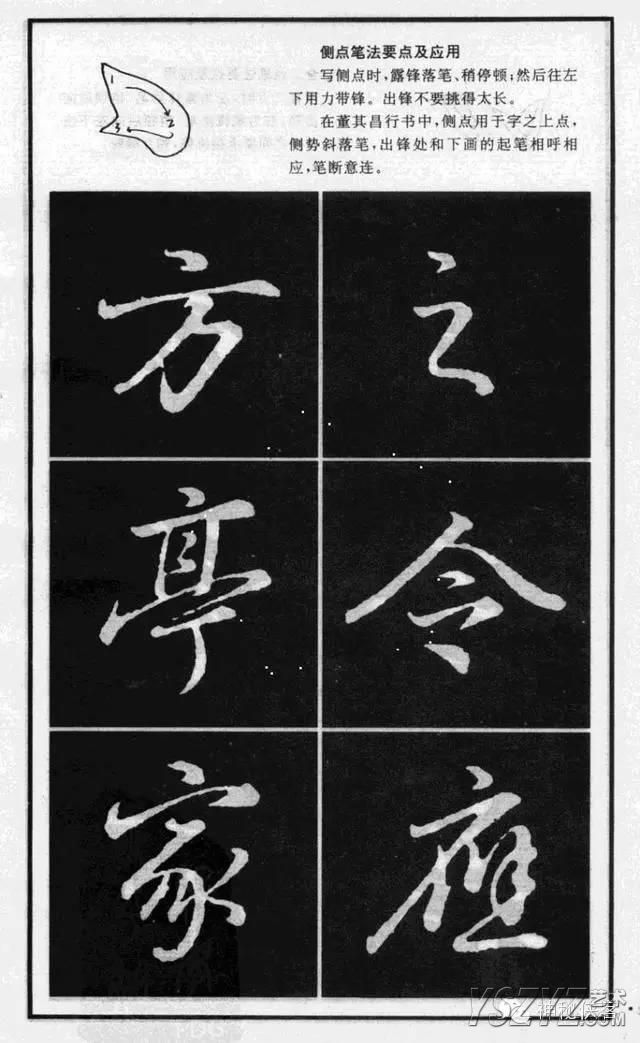 侧点笔法要点及应用
写侧点时,露锋落笔、稍停顿;然后往左
下用力带锋。出锋不要挑得太长。
在董其昌行书中,侧点用于字之上点,
侧势斜落笔,出锋处和下画的起笔相呼相
应,笔断意连。
1
2
3
方 之
亭 令
家 應
YSZYZ.COM